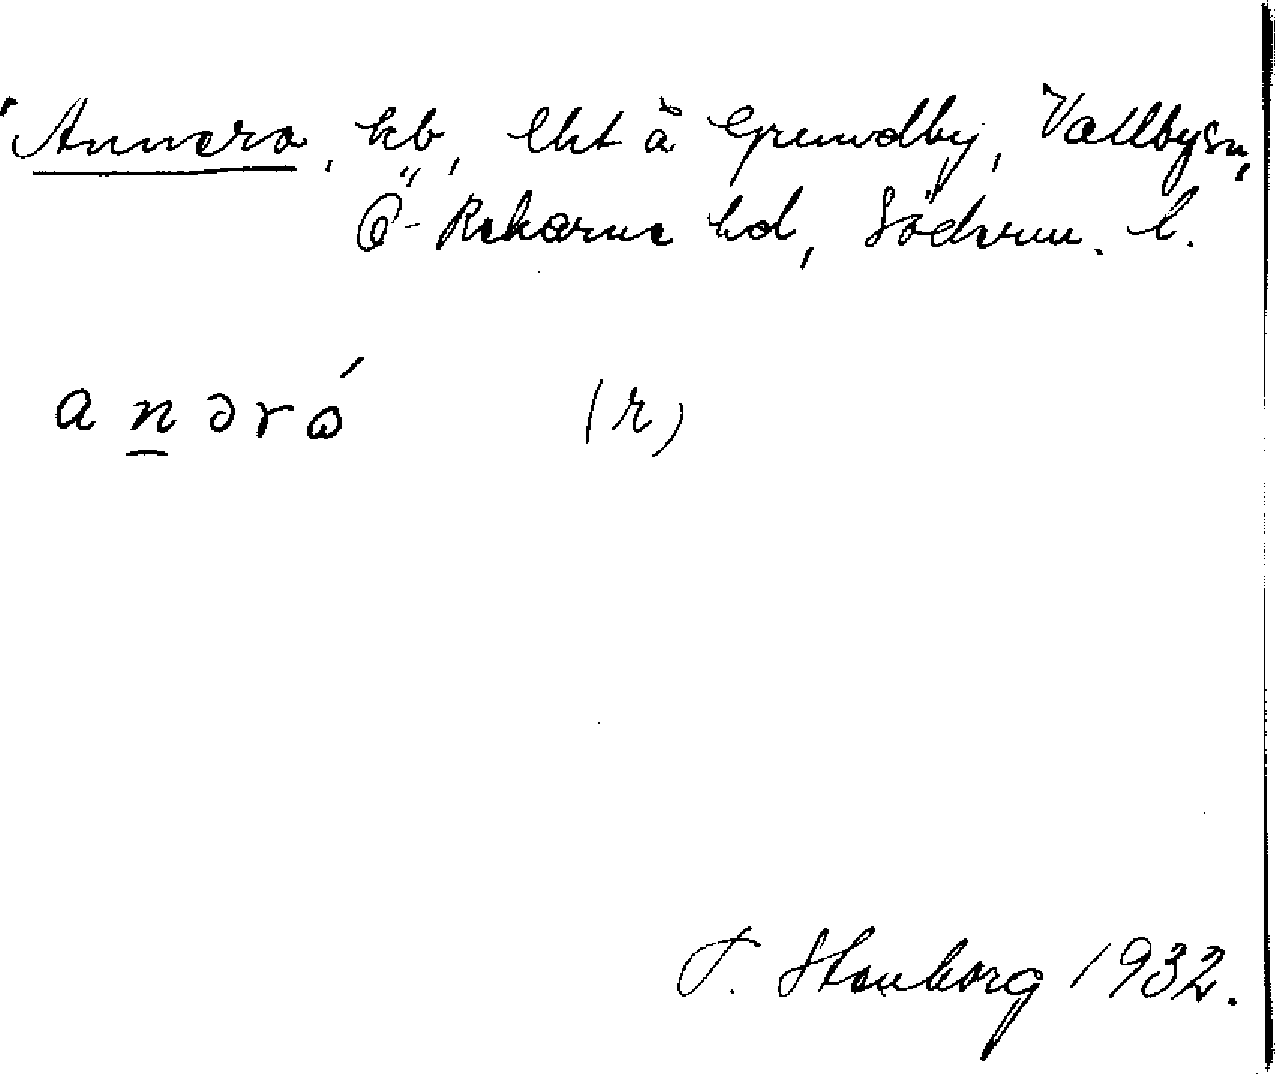 Annero, hb, lht å Grundby, Vallby sn,
Ö-Rekarne hd, Söderm. l.
a n ə r ɷ́ (r)
T. Stenborg 1932.